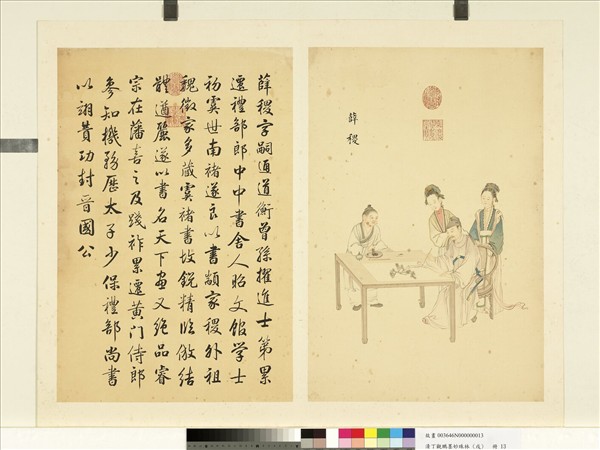 薛稷
薛稷字嗣通道衡曾孫擢進士第累
遷禮部郎中中書舍人昭文館学士
初虞世南褚遂良以書顓家稷外祖
魏徵家多蔵虞褚書故銳精臨倣結
體遒麗遂以書名天下畫又絶品睿
宗在藩喜之及踐祚累遷黄门侍郎
參知機務歷太子少保禮部尚書
以翊賛功封晉國公
故畫 003646N000000013
清丁觀鵬墨妙珠林（戌） 冊 13